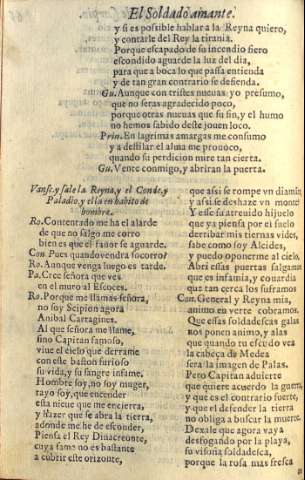 El Soldado amante.
y si es possible hablar a la Reyna quiero,
y contarle del Rey la tirania.
Porque escapado de su incendio fiero
escondido aguarde la luz del dia,
para que a boca lo que passa entienda
y de tan gran contrario se defienda.
Gu. Aunque con tristes nueuas yo presumo,
que no seras agradecido poco,
porque otras nueuas que su fin, y el humo
no hemos sabido deste jouen loco.
Prin. En lagrimas amargas me consumo
y a destilar el alma me prouoco,
quando su perdicion mire tan cierta.
Gu. Vente conmigo, y abriran la puerta.
Vanse. y sale la Reyna, y el Conde, y
Paladio, y ella en habito de
hombre.
Ro. Contentado me ha el alarde
de que no salgo me corro
bien es que el fauor se aguarde.
Con. Pues quando vendra socorro?
Ro. Aunque venga luego es tarde.
Pa. Cree señora que ves
en el muro al Escoces.
Ro. Porque me llamas señora,
no soy Scipion agora
Anibal Cartagines.
Al que señora me llame,
sino Capitan famoso,
viue el cielo que derrame
con este baston furioso
su vida, y su sangre infame.
Hombre soy, no soy muger,
rayo soy, que encender
esta nieue que me encierra,
y hazer que se abra la tierra,
adonde me he de esconder,
Piensa el Rey Dinacreonte,
cuya fama no es bastante
a cubrir este orizonte,
que assi se rompe vn diamante
y assi se deshaze vn monte?
Y esse su atreuido hijuelo
que ya piensa por el suelo
derribar mis tiernas vides,
sabe como soy Alcides,
y puedo oponerme al cielo.
Abri essas puertas salgamos
que es infamia, y couardia
que tan cerca los suframos
Con. General y Reyna mia,
animo en verte cobramos.
Que essas soldadescas galas
nos ponen animo, y alas
que quando tu escudo vea
la cabeça de Medea
sera la imagen de Palas.
Pero Capitan aduierte
que quiere acuerdo la guerra,
y que es el contrario fuerte,
y que el defender la tierra
no obliga a buscar la muerte.
Dexale que agora vaya
desfogando por la playa,
su visoña soldadesca,
porque la rosa mas fresca